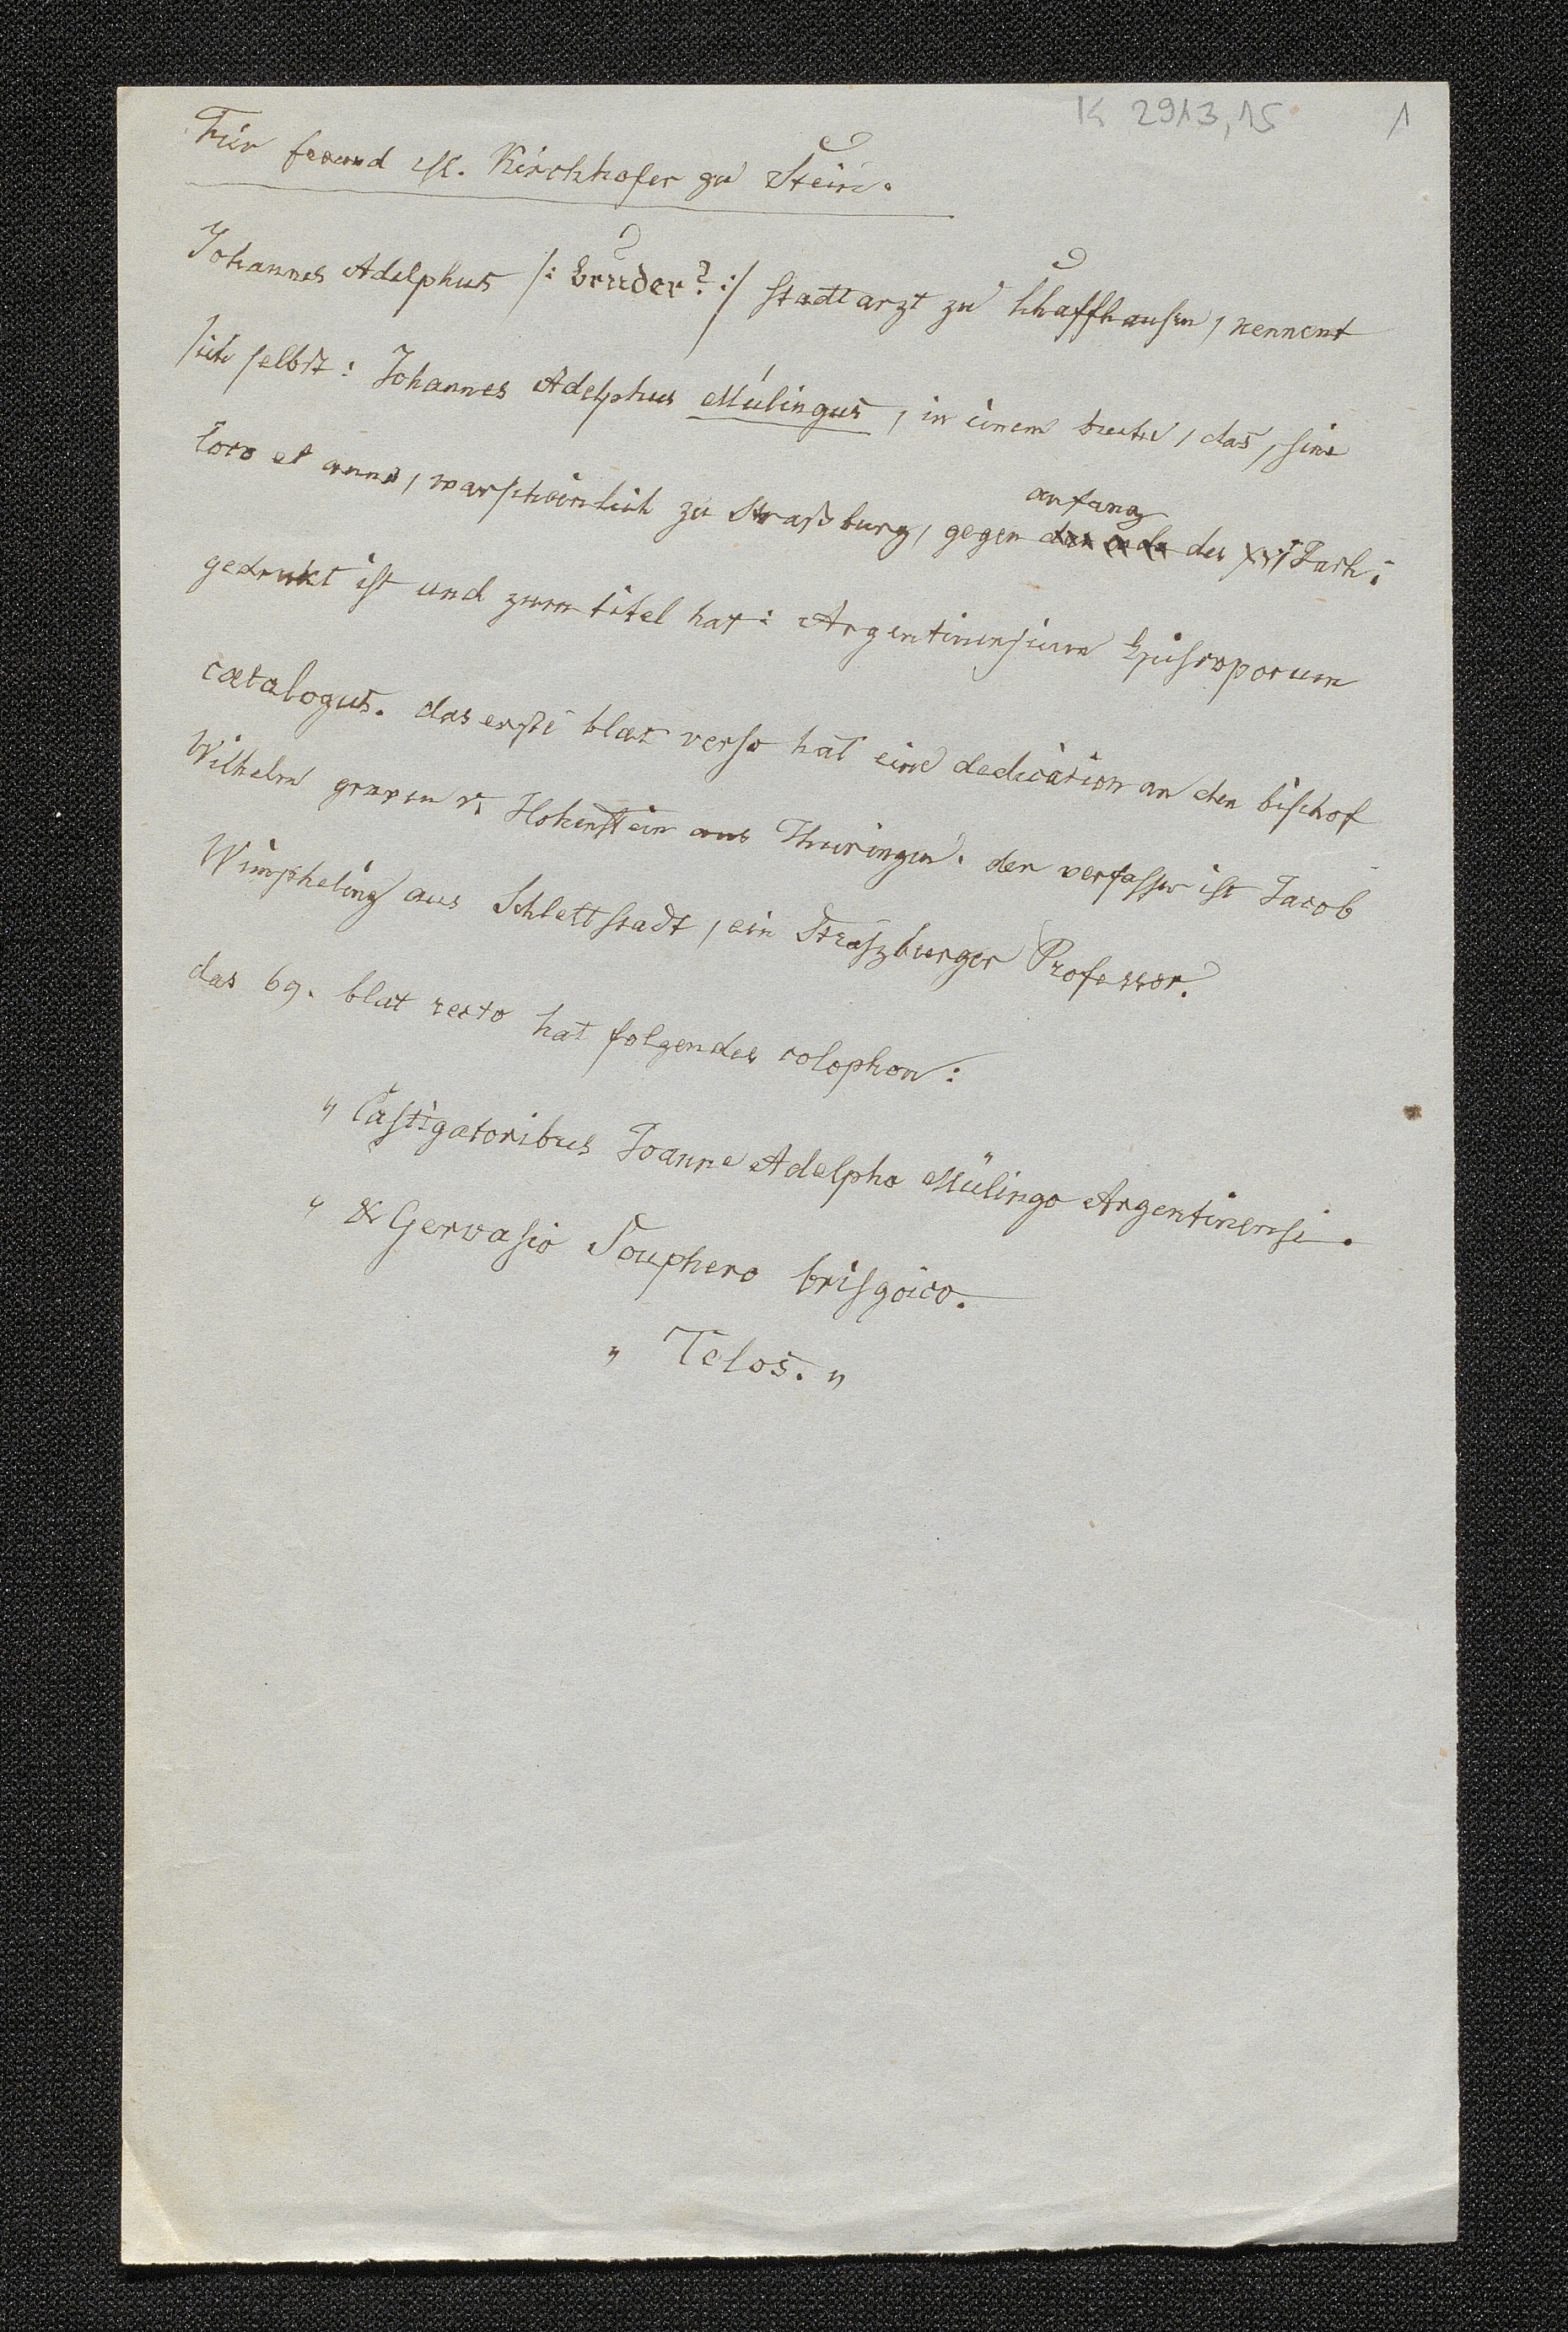 K 2913,15 1
Für freund M. Kirchhofer zu Stein.
Johannes Adelphus /: bruder? :/ stadtarzt zu schaffhausen, nennent
sich selbst: Johannes Adelphus Mülingus, in einem buche, das, sine
loco et anno, warscheinlich zu Straßburg, gegen anfang des XVI Jach.
gedrukt ist und zum titel hat: Argentinensium Episcoporum
catalogus. das erste blat verso hat eine dedication an den bischof
Wilhelm graven v. Hohenstein aus Thüringen. der verfasser ist Jacob
Wimpheling aus Schlettstadt, ein Straszburger Professor.
das 69. blat recto hat folgendes colophon:
„ Castigatoribus Joanne Adelpho Mülingo Argentinensi.
„ & Gervasio Souphero brisgoico.
„ Telos. „